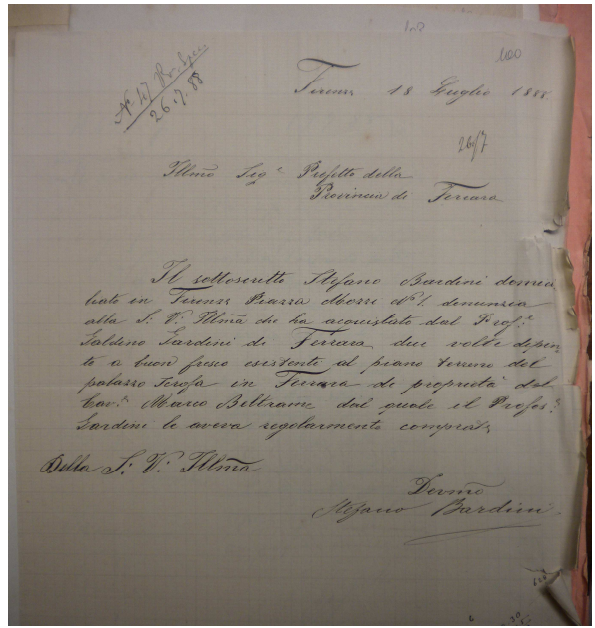 100
N. 47
26.7.88
Firenze 18 Luglio 1888
26/7
Illmo Sigr Prefetto della
Provincia di Ferrara
Il sottoscritto Stefano Bardini domici
liato in Firenze Piazza Mozzi No 1. denunzia
alla S: V: Illma che ha acquistato dal Profr
Gardini di Ferrara due volte depin
te a buon fresco esistente al piano terreno del
palazzo in Ferrara de proprietà del
Cavr Marco Beltrame dal quale il Profesr
Gardini le aveva regolarmente comprate
Della S: V: Illma
Devmo
Stefano Bardini